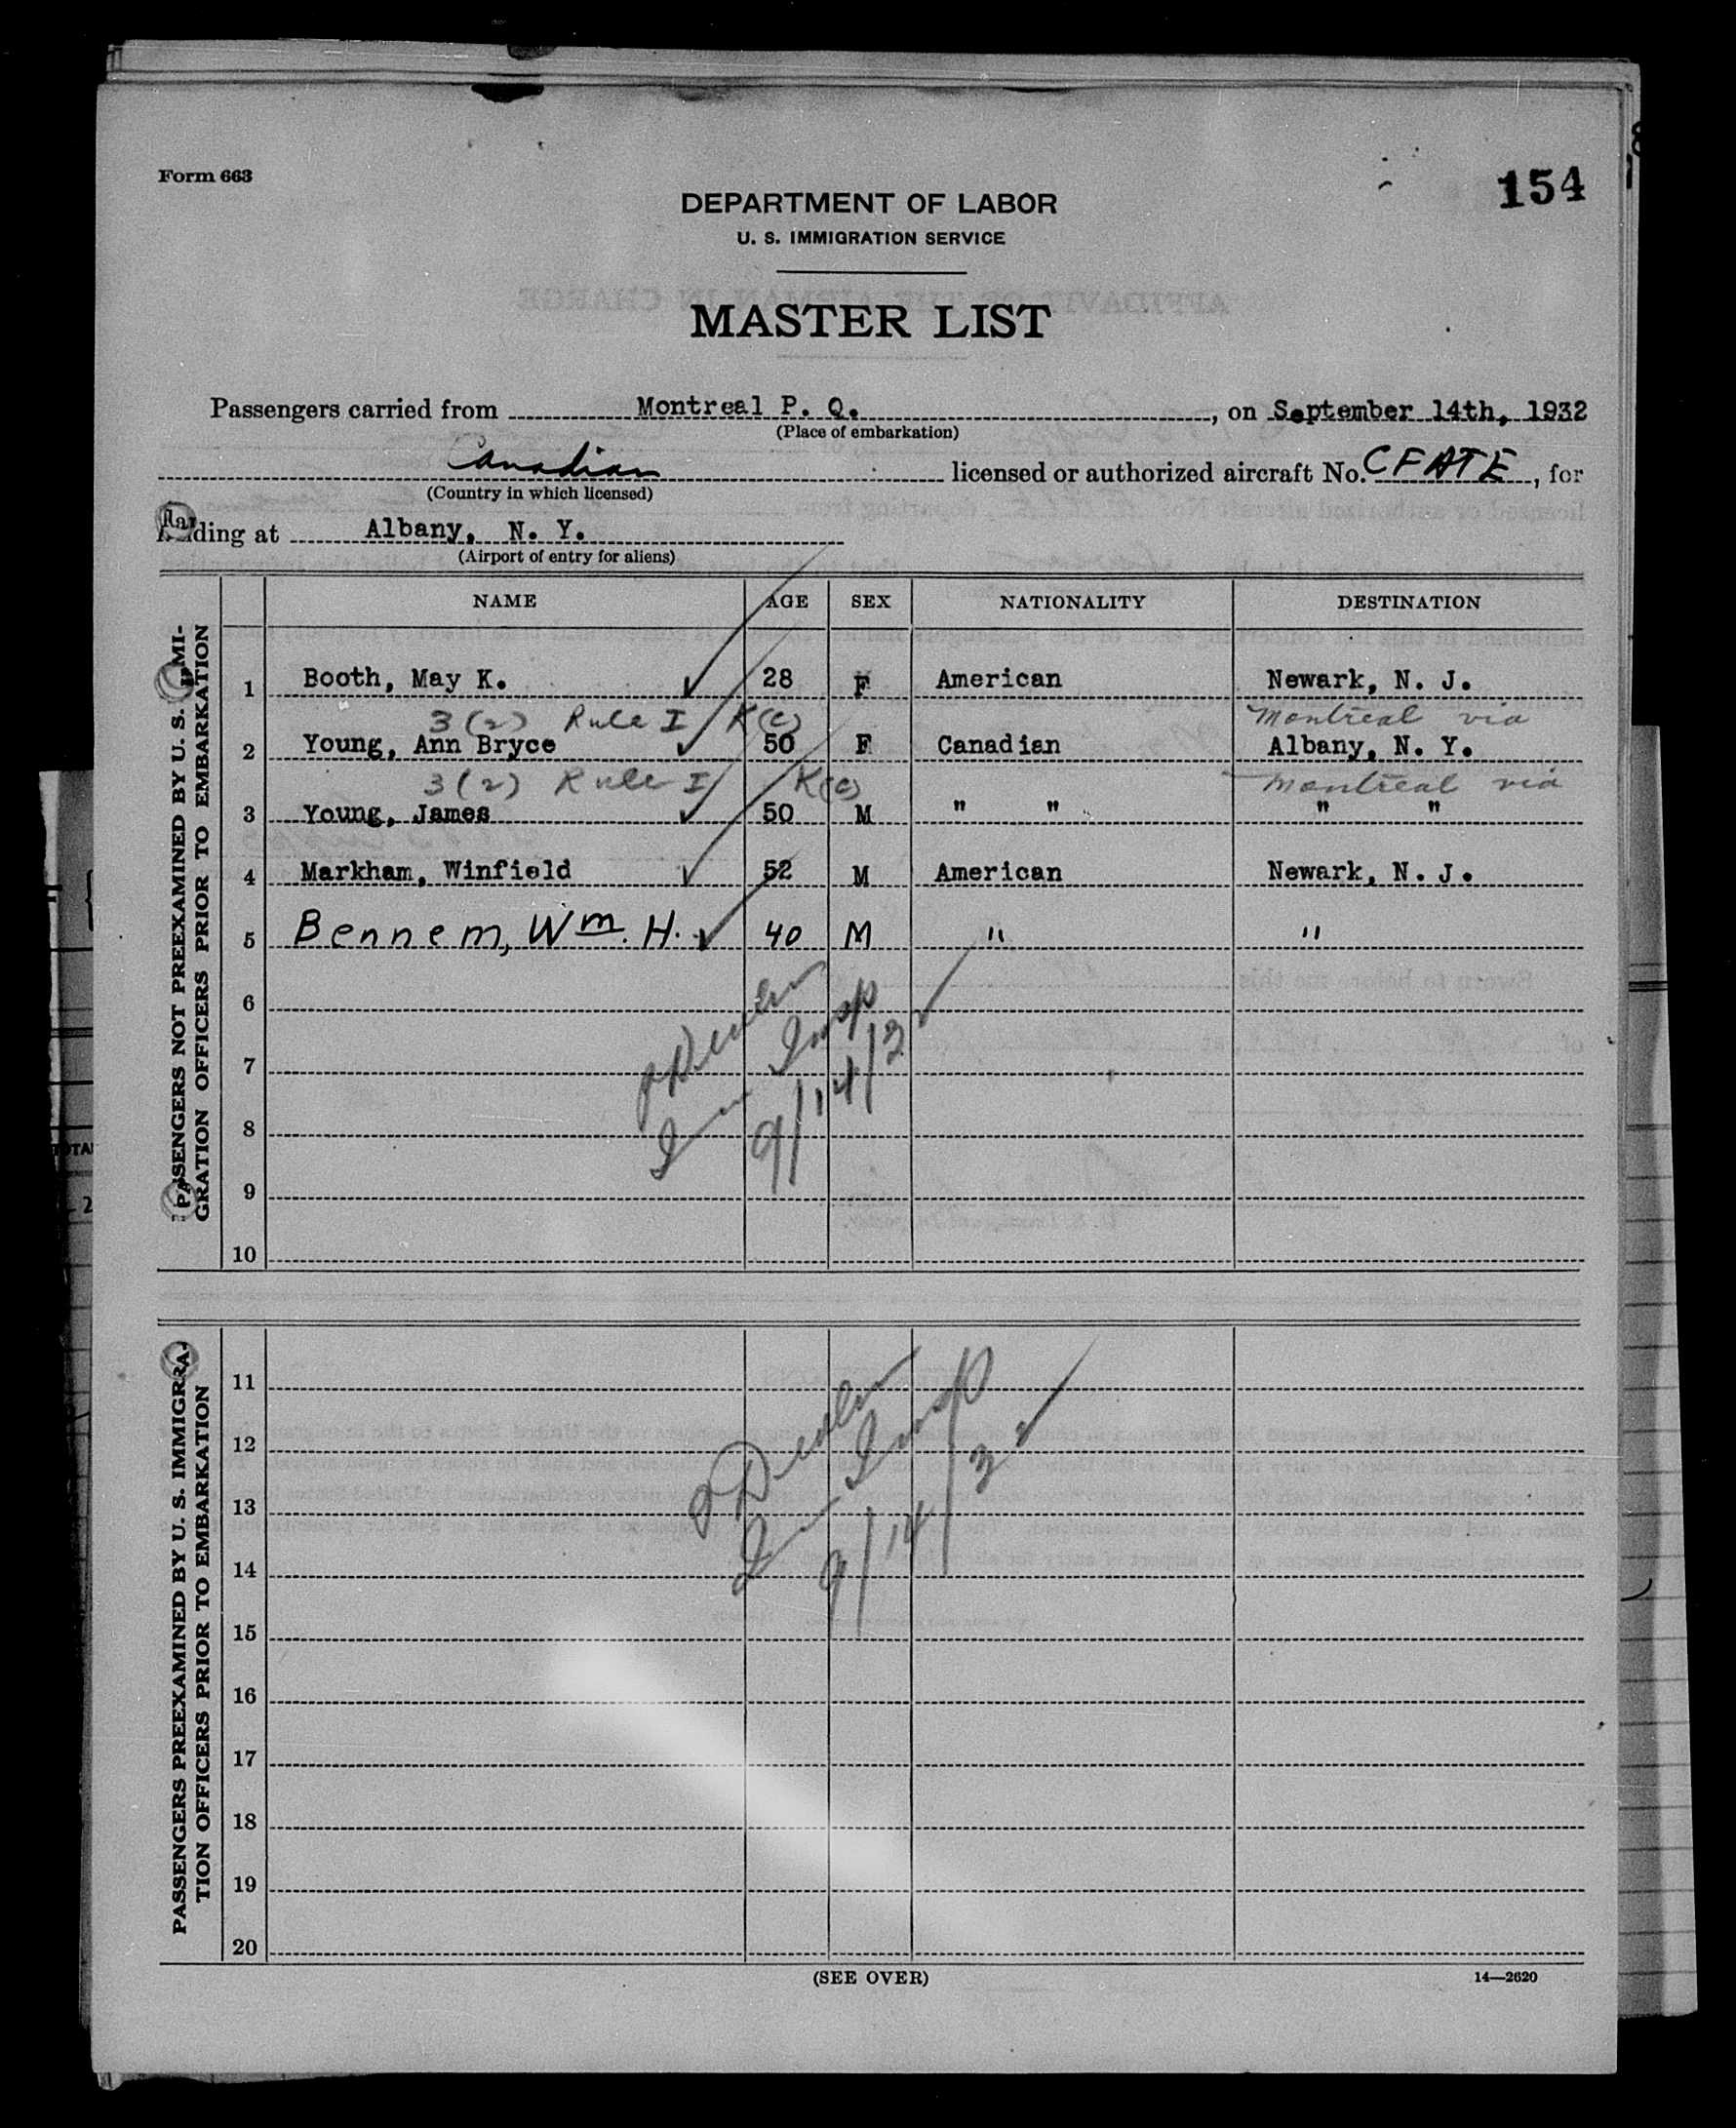 Form 663
154
DEPARTMENT OF LABOR
U. S. IMMIGRATION SERVICE
MASTER LIST
Passengers carried from Montreal P. Q., on September 14th, 1932
(Place of embarkation)
Canadian licensed or authorized aircraft No. CFATE, for
(Country in which licensed)
landing at Albany, N. Y.
(Airport of entry for aliens)
PASSENGERS NOT PREEXAMINED BY U. S. IMMI-
GRATION OFFICERS PRIOR TO EMBARKATION
NAME AGE SEX NATIONALITY DESTINATION
1 Booth, May K. 28 F American Newark, N. J.
3(2) Rule I K(c) Montreal via
2 Young, Ann Bryce 50 F Canadian Albany, N. Y.
3(2) Rule I K(c) Montreal via
3 Young, James 50 M " " " "
4 Markham, Winfield 52 M American Newark, N. J.
5 Bennem, Wm. H. 40 M " "
6
7
8
9
10
Insp
9/14/32
PASSENGERS PREEXAMINED BY U. S. IMMIGRA-
TION OFFICERS PRIOR TO EMBARKATION
11
12
13
14
15
16
17
18
19
20
Insp
9/14/32
(SEE OVER)
14—2620